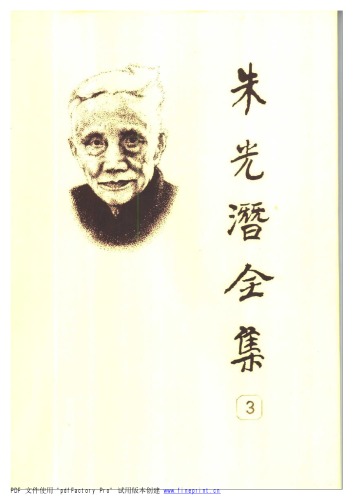 朱光潛全集
3
PDF 文件使用 "pdfFactory Pro" 试用版本创建 www.fineprint.cn